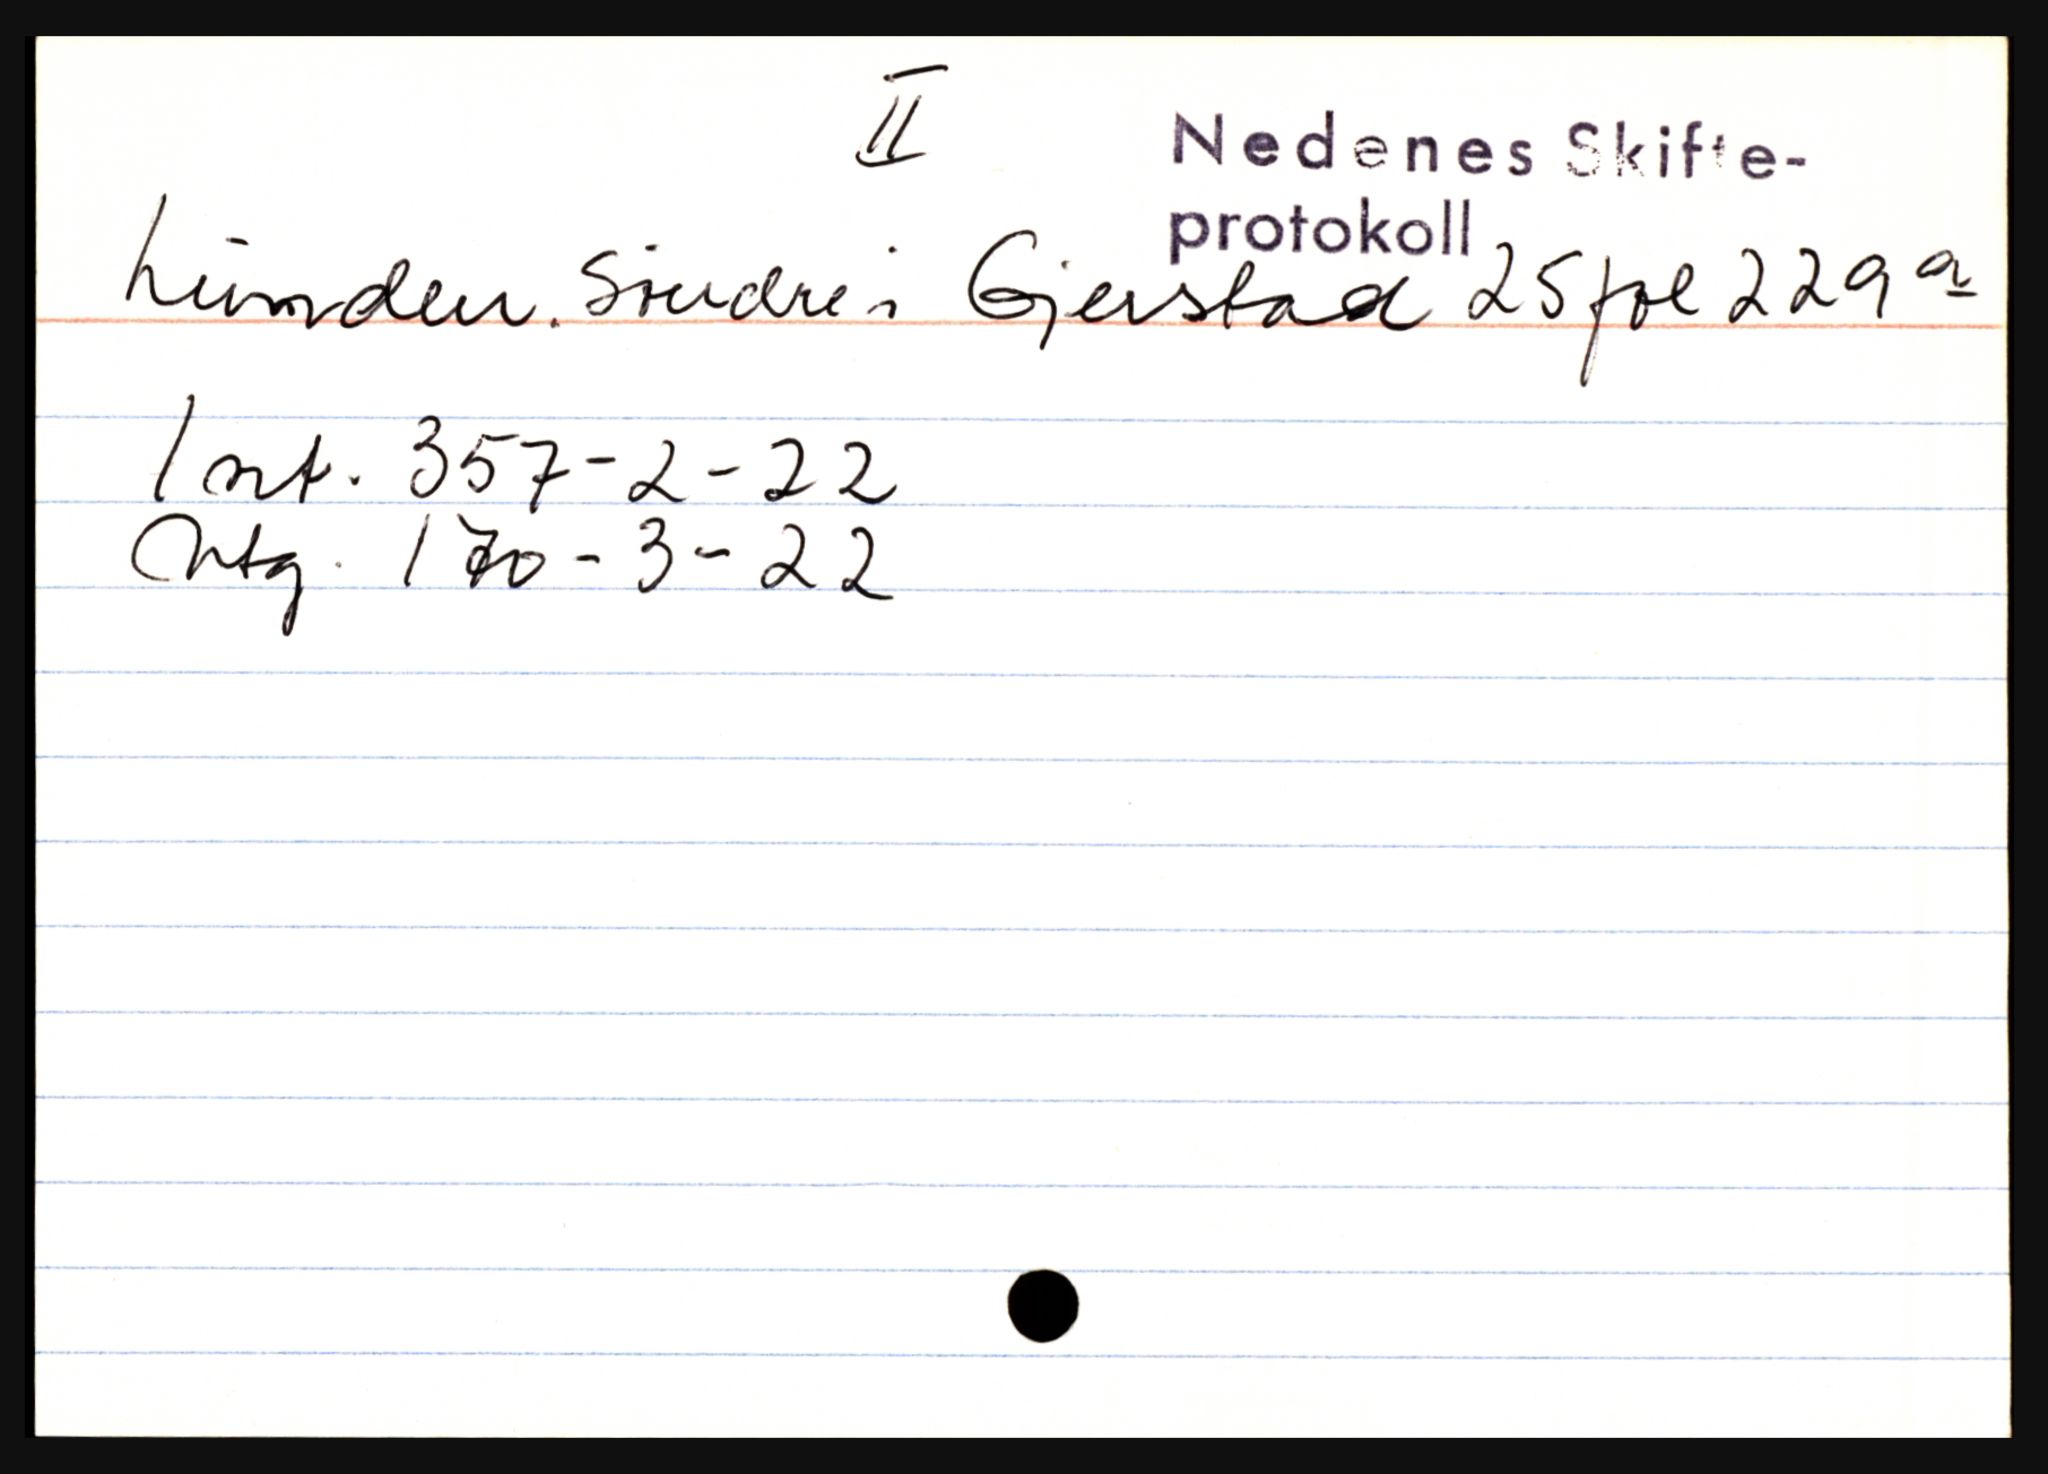 II
Nedenes Skifte-
protokoll
Lunden. Søndre i Gjerstad 25 fol 229 a
Int. 357-2-22
Utg. 170-3-22